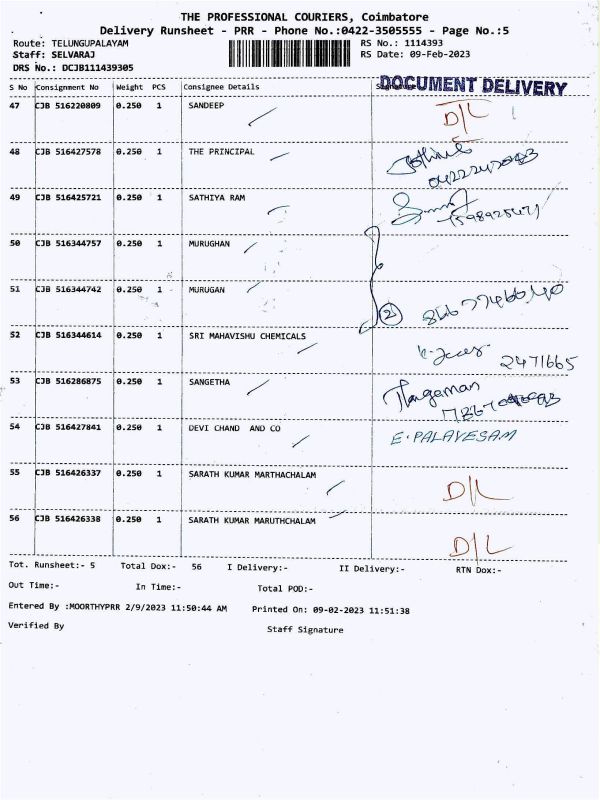 THE PROFESSIONAL COURIERS, Coimbatore
Delivery Runsheet - PRR - Phone No.:0422-3505555 - Page No.:5
Route: TELUNGUPALAYAM RS No.: 1114393
Staff: SELVARAJ RS Date: 09-Feb-2023
DRS No.: DCJB111439305
DOCUMENT DELIVERY
S No Consignment No Weight PCS Consignee Details
47 CJB 516220809 0.250 1 SANDEEP D/L
48 CJB 516427578 0.250 1 THE PRINCIPAL
49 CJB 516425721 0.250 1 SATHIYA RAM
50 CJB 516344757 0.250 1 MURUGHAN
51 CJB 516344742 0.250 1 MURUGAN 2
52 CJB 516344614 0.250 1 SRI MAHAVISHU CHEMICALS 2471665
53 CJB 516286875 0.250 1 SANGETHA
54 CJB 516427841 0.250 1 DEVI CHAND AND CO E. PALAVESAM
55 CJB 516426337 0.250 1 SARATH KUMAR MARTHACHALAM D/L
56 CJB 516426338 0.250 1 SARATH KUMAR MARUTHCHALAM D/L
Tot. Runsheet:- 5 Total Dox:- 56 I Delivery:- II Delivery:- RTN Dox:-
Out Time:- In Time:- Total POD:-
Entered By :MOORTHYPRR 2/9/2023 11:50:44 AM Printed On: 09-02-2023 11:51:38
Verified By Staff Signature